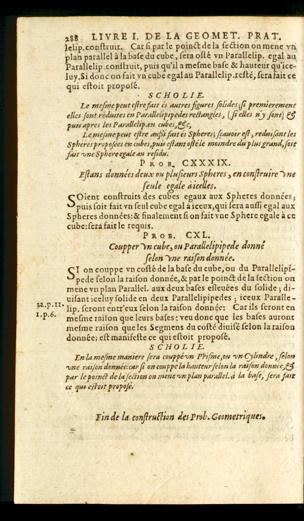 288 LIVRE I. DE LA GEOMET. PRAT.
lelip.construit. Car si par le poinct de la section on mene vn
plan parallel à la base du cube, sera osté vn Parallelip. egal au
Parallelip.construit, puis qu'il a mesme base & hauteur qu'ice-
luy, Si donc on fait vn cube egal au Parallelip.resté, sera fait ce
qui estoit proposé.
SCHOLIE.
Le mesme peut estre fait és autres figures solides, si premierement
elles sont reduites en Parallelipipedes rectangles, (si elles n'y sont) &
puis apres les Parallelip.en cubes, &c,
Le mesme peut estre aussi fait és Spheres, sçauoir est, reduisant les
Spheres proposées en cubes, puis estant osté le moindre du plus grand, soit
fait vne Sphere egale au residu.
PROB. CXXXIX.
Estans données deux ou plusieurs Spheres, en construire vne
seule egale à icelles.
SOient construits des cubes egaux aux Spheres données;
puis soit fait vn seul cube egal à iceux, qui sera aussi egal aux
Spheres données: & finalement si on fait vne Sphere egale à ce
cube: sera fait le requis.
PROB. CXL.
Coupper vn cube, ou Parallelipipede donné
selon vne raison donnée.
SI on couppe vn costé de la base du cube, ou du Parallelipi-
pede selon la raison donnée, & par le poinct de la section on
mene vn plan Parallel. aux deux bases esleuées du solide; di-
uisant iceluy solide en deux Parallelipipedes; iceux Paralle-
32.p.11. lip. seront entr'eux selon la raison donnée: Car ils seront en
1.p.6. mesme raison que leurs bases: veu donc que les bases auront
mesme raison que les Segmens du costé diuisé selon la raison
donnée; est manifeste ce qui estoit proposé.
SCHOLIE.
En la mesme maniere sera couppé vn Prisme, ou vn Cylindre, selon
vne raison donnée: car si on couppe la hauteur selon la raison donnée, &
par le poinct de la section on mene vn plan parallel. à la base, sera fait
ce qui estoit proposé.
Fin de la construction des Prob. Geometriques.